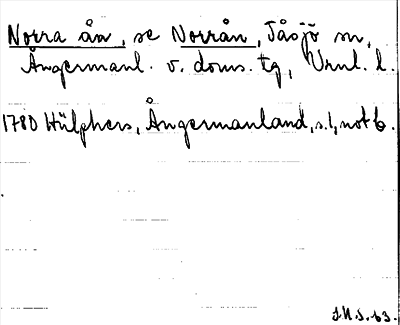 Norra ån, se Norrån, Tåsjö sn,
Ångermanl. v. doms. tg, Vrnl. l.
1780 Hülphers, Ångermanland, s. 1, not b.